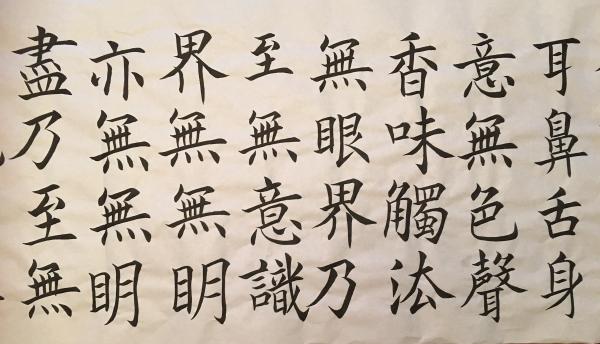 耳鼻舌身
意無色聲
香味觸法
無眼界乃
至無意識
界無無明
亦無無明
盡乃至無